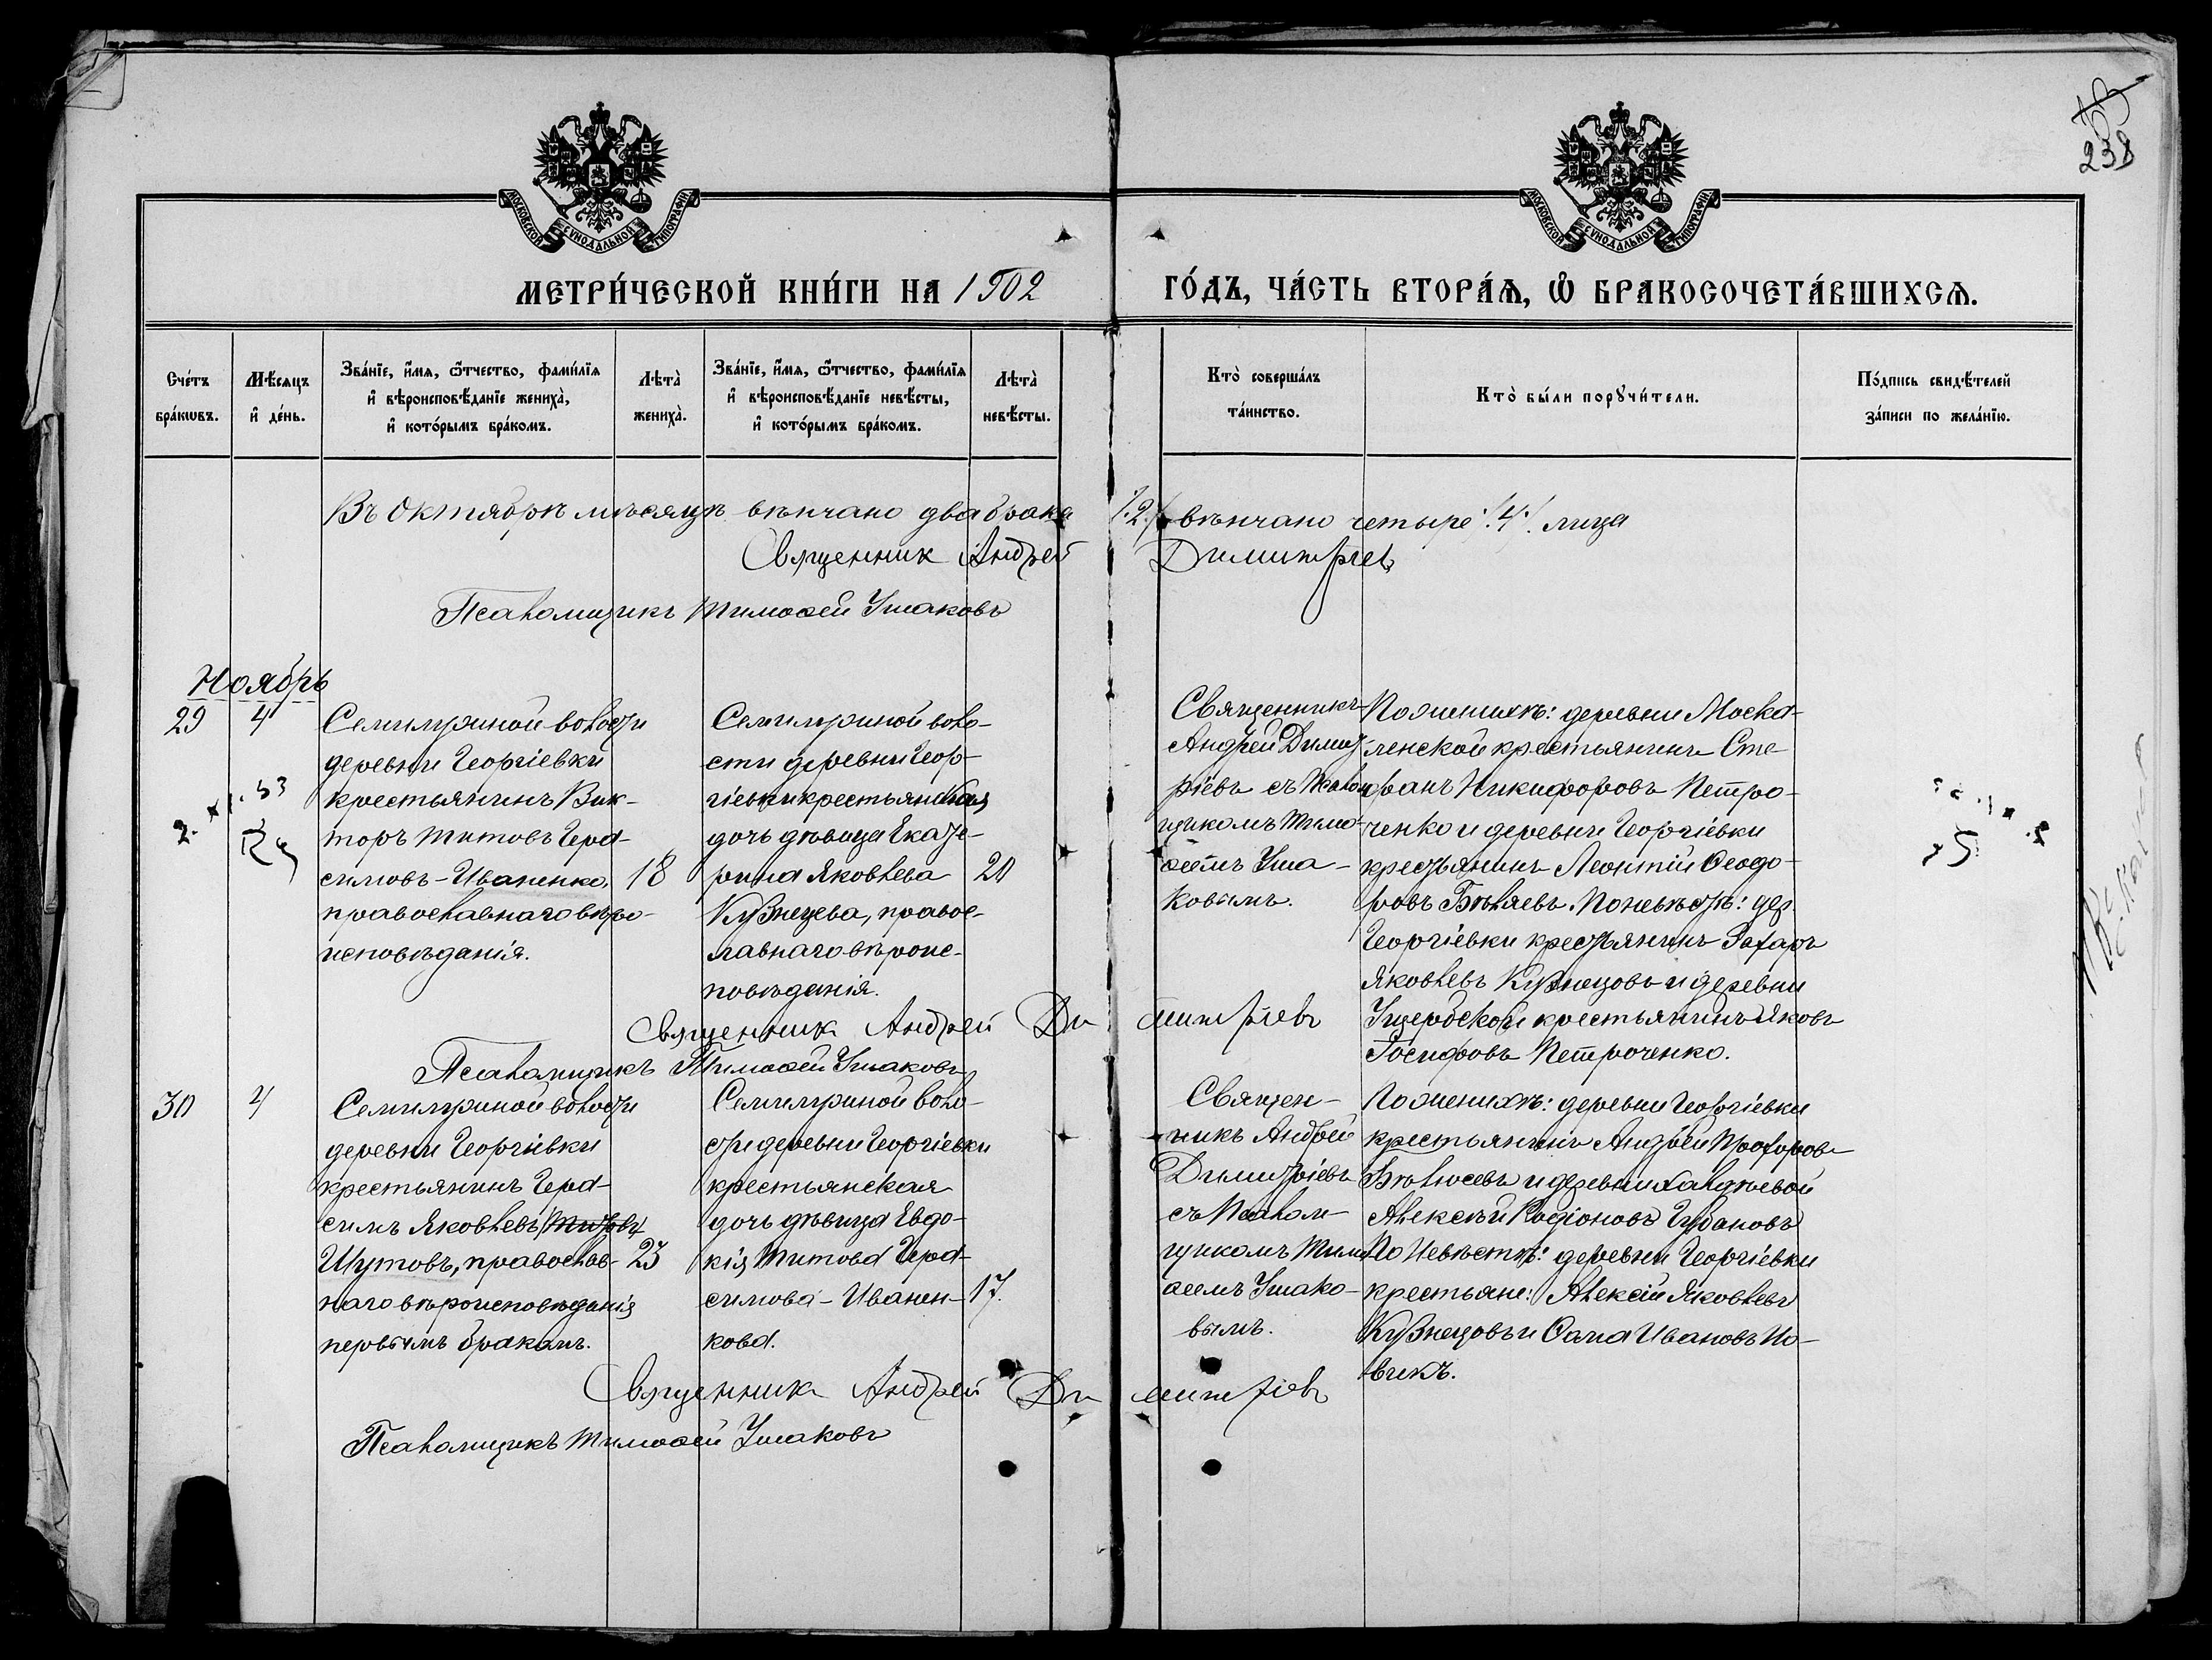 238
МОСКОВСКОЙ СѴНОДАЛЬНОЙ ТИПОГРАФІИ
МОСКОВСКОЙ СѴНОДАЛЬНОЙ ТИПОГРАФІИ
МЕТРИ́ЧЕСКОЙ КНИ́ГИ НА 1902 ГО́ДЪ, ЧА́СТЬ ВТОРА́Ѧ, Ѡ҆ БРАКОСОЧЕТА́ВШИХСѦ.
Сче́тъ
бра́кѡвъ.
Мѣ́сѧцъ
и҆ де́нь.
Зва́нїе, и҆́мѧ, ѻ҆́тчество, фами́лїѧ
и҆ вѣроисповѣ́данїе жениха̀,
и҆ кото́рымъ бра́комъ.
Лѣ́та̀
жениха̀.
Зва́нїе, и҆́мѧ, ѻ҆́тчество, фами́лїѧ
и҆ вѣроисповѣ́данїе невѣ́сты,
и҆ кото́рымъ бра́комъ.
Лѣ́та̀
невѣ́сты.
Кто̀ соверша́лъ
та́инство.
Кто̀ бы́ли порꙋчи́тели.
По́дпись свидѣ́телей
за́писи по жела́нїю.
Въ Октябрѣ мѣсяцѣ вѣнчано два брака /.2./ вѣнчано четыре /.4./ лица
Священник Андрей Димитріевъ
Псаломщикъ Тимоѳей Ушаковъ
Ноябрь
29 4
Семимужной волости
деревни Георгіевки
крестьянинъ Вик-
торъ Титовъ Гера-
симовъ-Иваненко,
православнаго вѣро-
исповѣданія.
18
волости деревни Геор-
гіевки крестьянская
дочь дѣвица Екате-
рина Яковлева
Кузнецева, правос-
лавнаго вѣроис-
повѣданія.
20
Священникъ
Андрей Димит-
ріевъ съ Псалом-
щикомъ Тимо-
ѳеемъ Уша-
ковымъ.
По женихѣ: деревни Моска-
ленской крестьянинъ Сте-
фанъ Никифоровъ Петро-
ченко и деревни Георгіевки
крестьянинъ Леонтій Ѳеодо-
ровъ Бѣляевъ. По невѣстѣ: дер.
Георгіевки крестьянинъ Захаръ
Яковлевъ Кузнецовъ и деревни
крестьянинъ Яковъ
Іосифовъ Петроченко.
Священник Андрей Димитріевъ
Псаломщикъ Тимоѳей Ушаковъ
30 4
волости
деревни Георгіевки
крестьянинъ Гера-
симъ Яковлевъ Титовъ
Шутовъ, православ-
наго вѣроисповѣданія
первымъ бракомъ.
23
воло-
сти деревни Георгіевки
крестьянская
дочь дѣвица Евдо-
кія Титова Гера-
симова-Иванен-
кова.
17.
Священ-
никъ Андрей
Димитріевъ
съ Псалом-
щикомъ Тимо-
ѳеемъ Ушако-
вымъ.
По женихѣ: деревни Георгіевки
крестьянинъ Андрей Прохоровъ
и деревни
Алексѣй Родіоновъ
По Невѣстѣ: деревни Георгіевки
крестьяне: Алексій Яковлевъ
Кузнецовъ и Ѳома Ивановъ Но-
викъ.
Священник Андрей Димитріевъ
Псаломщикъ Тимоѳей Ушаковъ